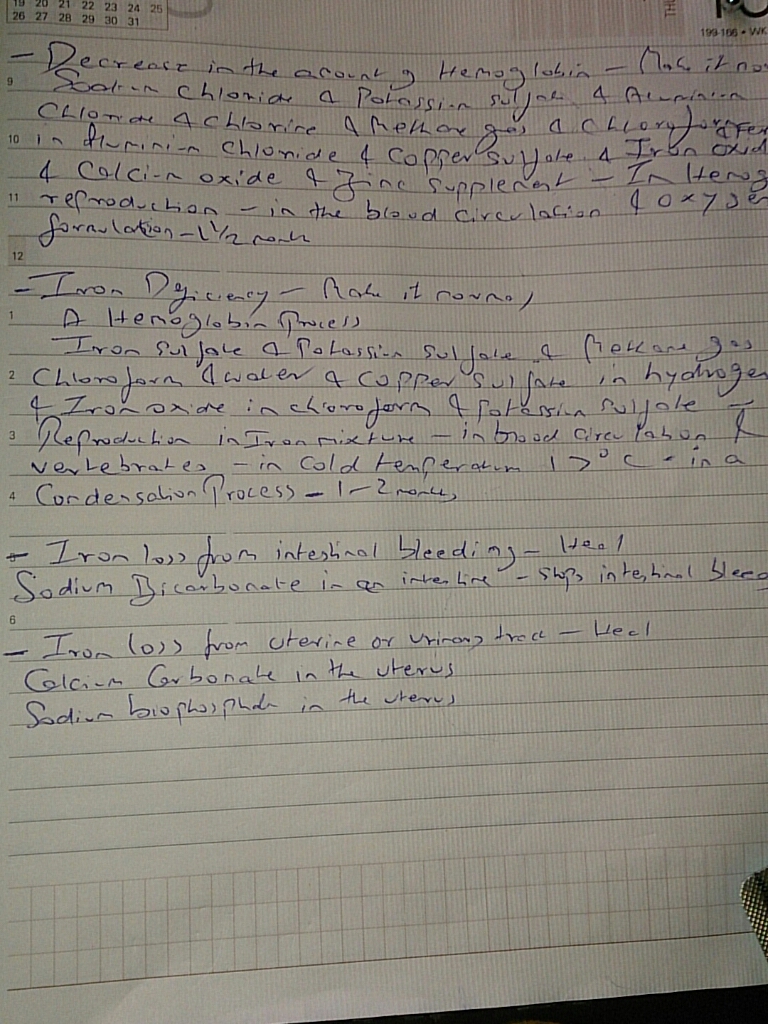 19 20 21 22 23 24 25
26 27 28 29 30 31
199-166 • WK
- Decrease in the acount of Hemoglobin - Make it no
9 Sodium Chloride & Potassium Sulfate & Aluminium
Chloride & Chlorine & Methane gas & Chloroform
10 in Aluminium Chloride & Copper Sulfate & Iron oxid
& Calcium oxide & Zinc Supplement - In Hemog
11 reproduction - in the blood circulation & oxygen
formulation - 1 1/2 month
12
- Iron Deficiency - Make it normal
1 A Hemoglobin Process
Iron Sulfate & Potassium Sulfate & Methane gas
2 Chloroform & water & Copper Sulfate in hydrogen
& Iron oxide in chloroform & Potassium Sulfate -
3 Reproduction in Iron mixture - in blood circulation &
vertebrates - in Cold temperature 17°C - in a
4 Condensation Process - 1-2 months
- Iron loss from intestinal bleeding - Heal
Sodium Bicarbonate in an intestine - stops intestinal bleed
6
- Iron loss from uterine or urinary tract - Heal
Calcium Carbonate in the uterus
Sodium biophosphate in the uterus